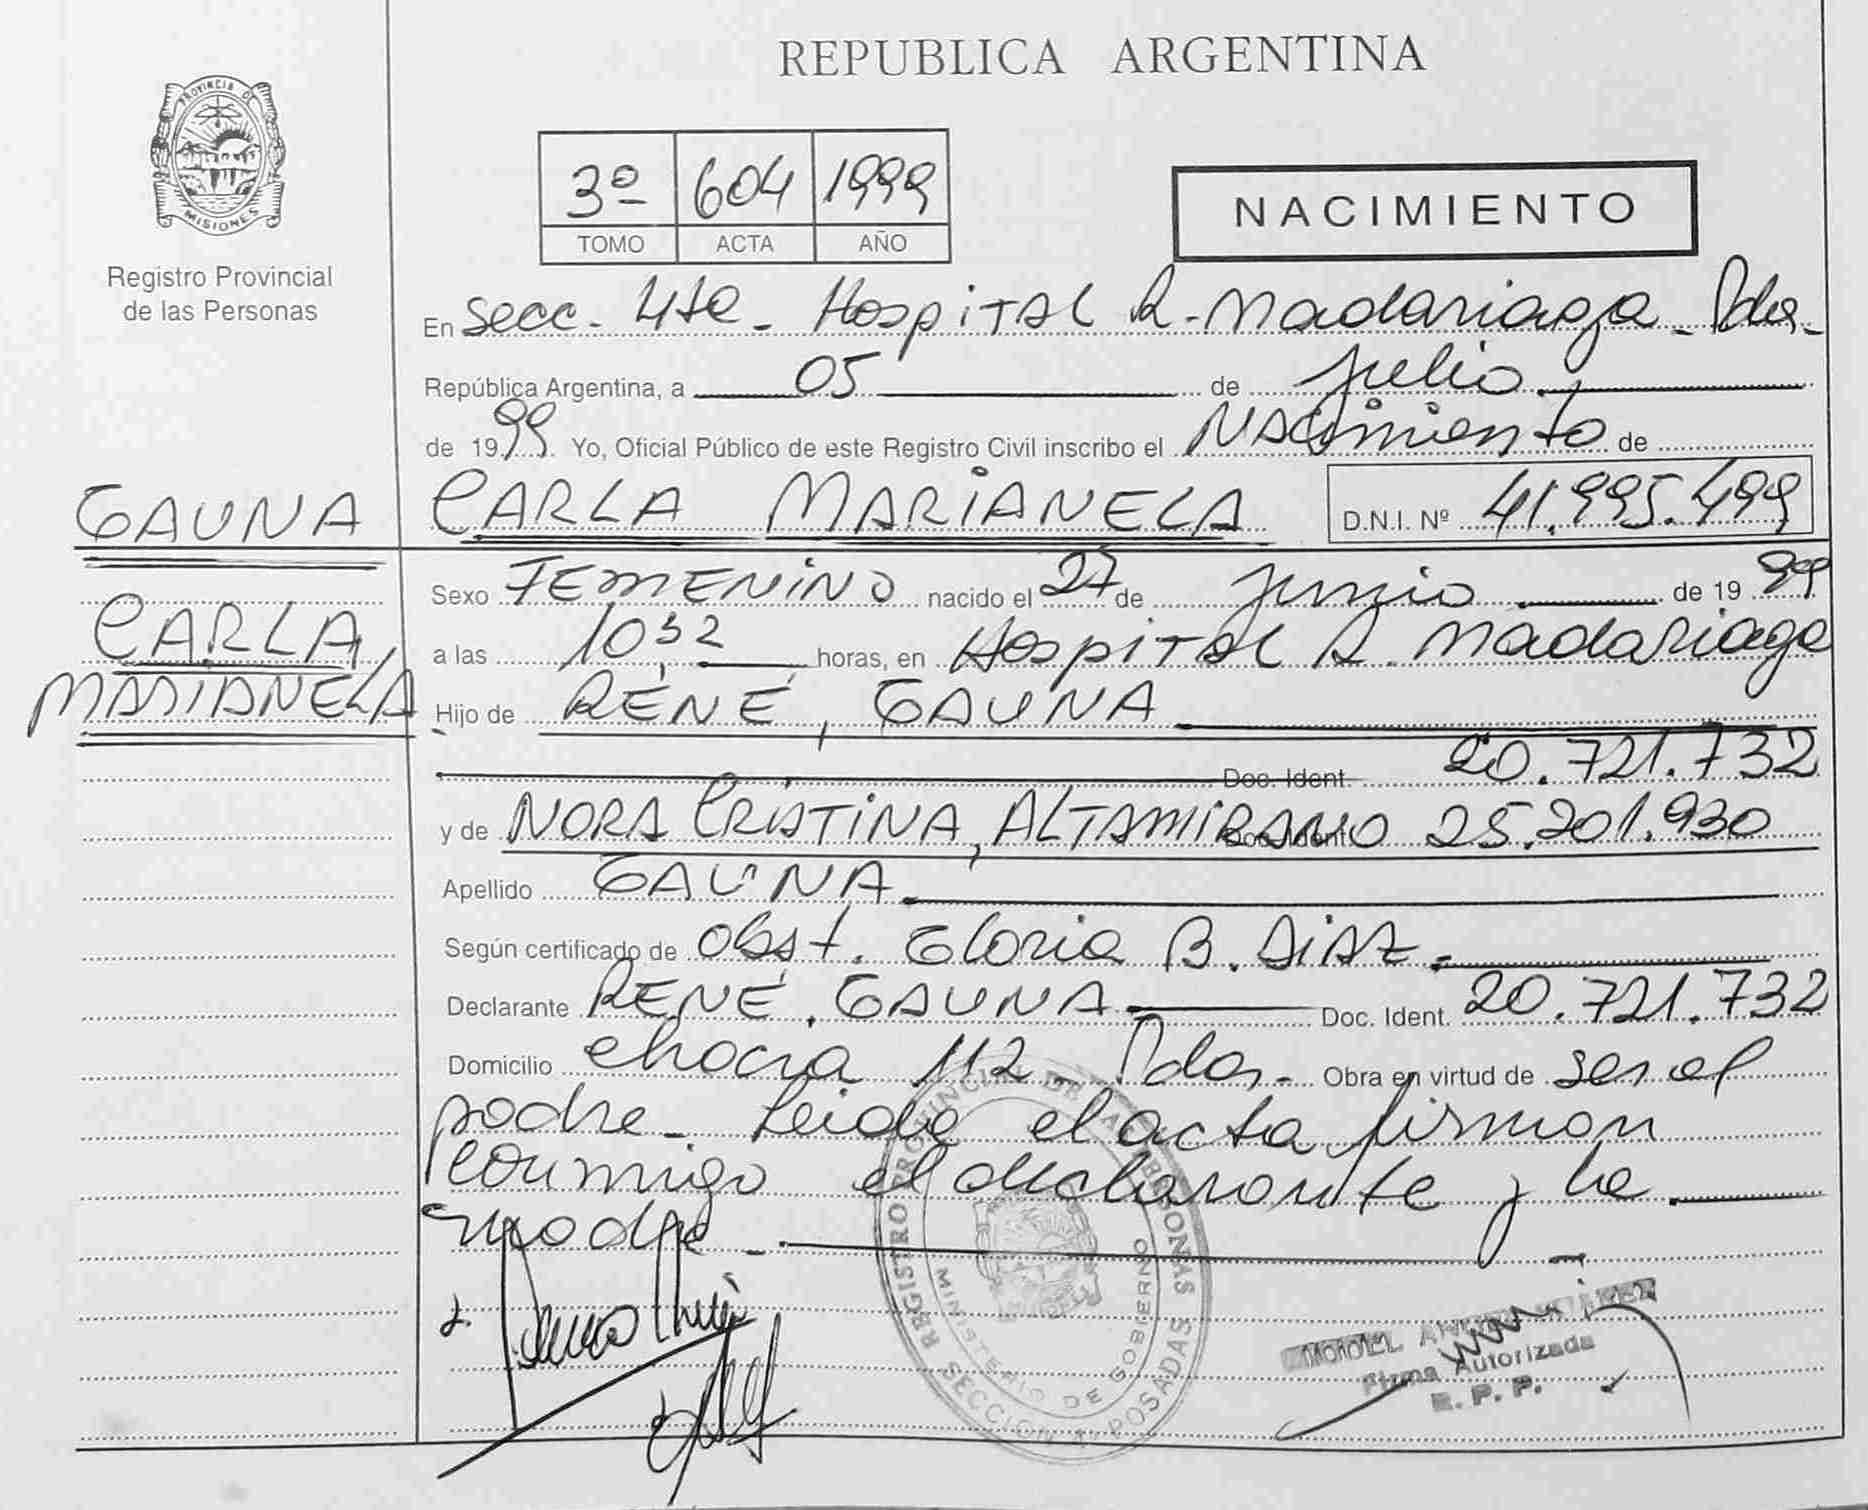 REPUBLICA ARGENTINA
PROVINCIA DE
MISIONES
Registro Provincial
de las Personas
3º 604 1999
TOMO ACTA AÑO
NACIMIENTO
En Secc. 4ta. Hospital R. Madariaga. Pdas.
República Argentina, a 05 de julio
de 1999 Yo, Oficial Público de este Registro Civil inscribo el Nacimiento de
GAUNA
CARLA MARIANELA D.N.I. Nº 41.995.499
CARLA
MARIANELA
Sexo FEMENINO nacido el 27 de junio de 1999
a las 10,32 horas, en Hospital R. Madariaga
Hijo de RENÉ, GAUNA
Doc. Ident. 20.721.732
y de NORA CRISTINA, ALTAMIRANO Doc. Ident. 25.201.930
Apellido GAUNA
Según certificado de Obst. Gloria B. DIAZ.
Declarante RENÉ, GAUNA Doc. Ident. 20.721.732
Domicilio 112 Pdas. Obra en virtud de ser el
padre. Leida el acta firman
conmigo el declarante y la
madre
REGISTRO PROVINCIAL DE LAS PERSONAS
MINISTERIO DE GOBIERNO
SECCION POSADAS
Firma Autorizada
R. P. P.